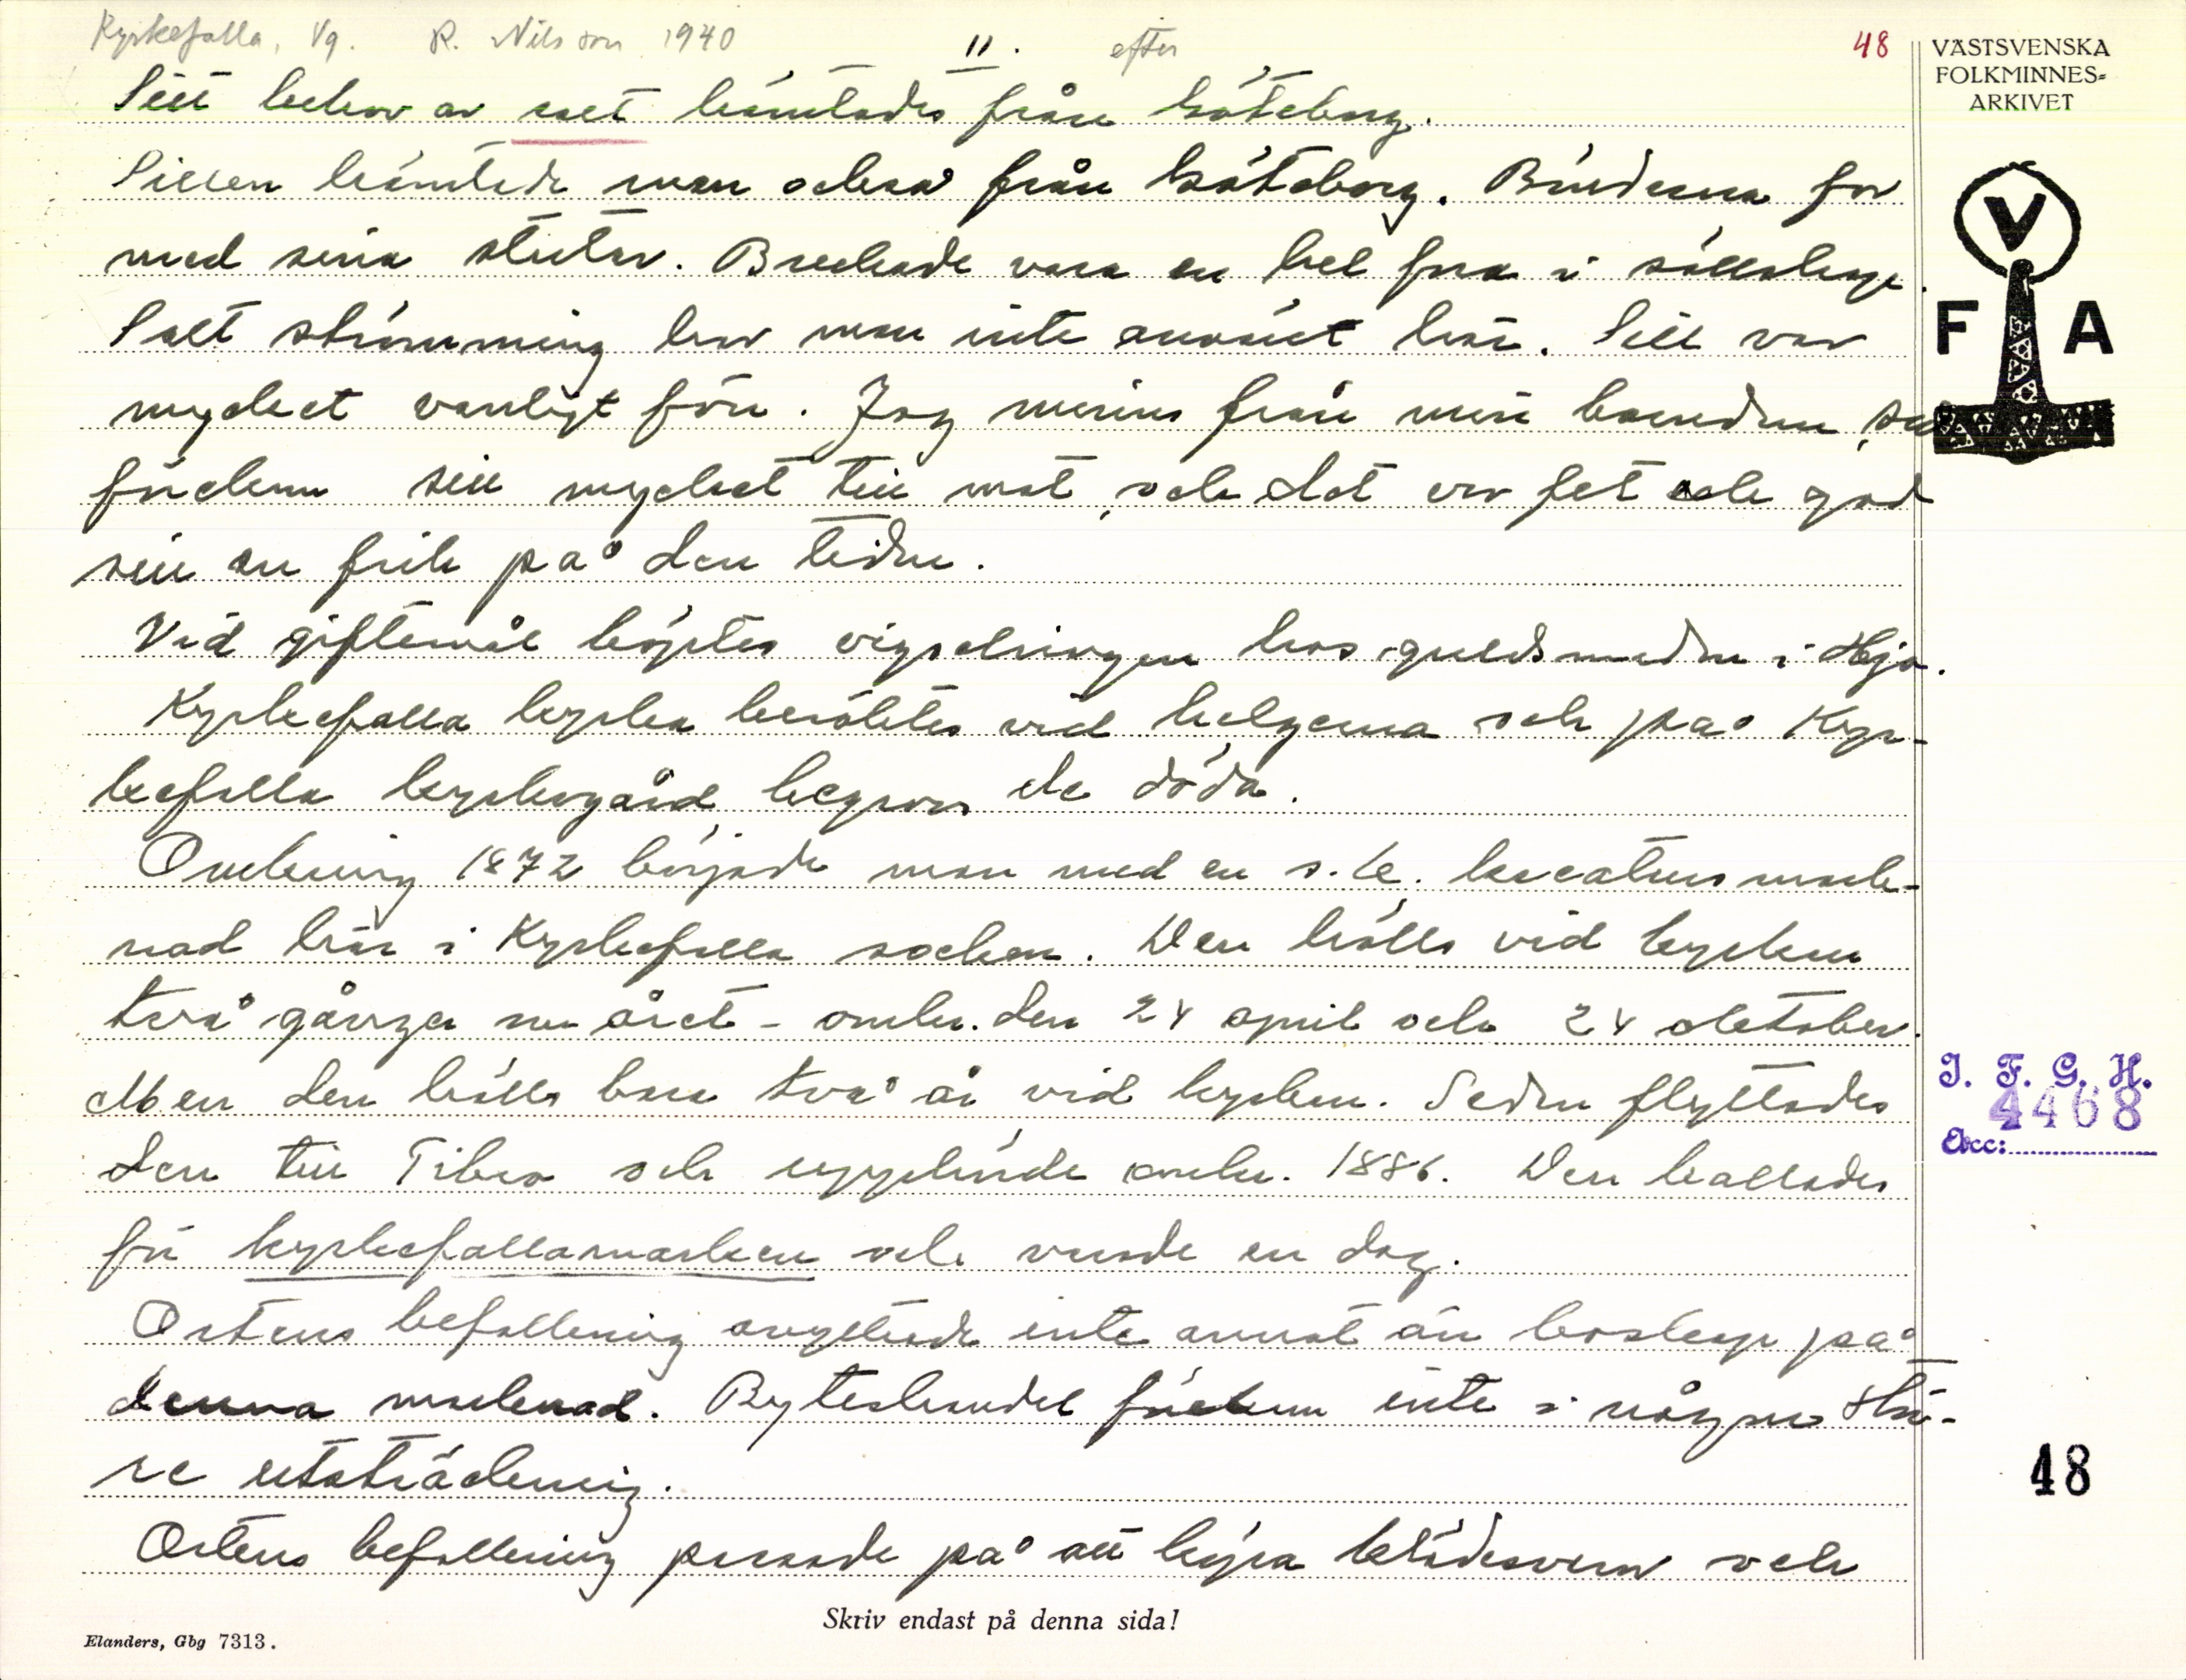 Kyrkefalla, Vg. R. Nilsson 1940 11. efter 48
Sitt behov av salt hämtades från Göteborg.
Sillen hämtade man också från Göteborg. Bönderna for
med sina stutar. Brukade vara en hel hop i sällskap.
Salt strömming har man inte använt här. Sill var
mycket vanligt förr. Jag minns från min barndom, se
förekom sill mycket till mat, och det var fet och god
sill en fick på den tiden.
Vid giftermål köptes vigselringen hos guldsmeden i Hjo.
Kyrkefalla kyrka besöktes vid helgerna och på Kyr-
kefalla kyrkogård begravs de döda.
Omkring 1872 började man med en s.k. kreatursmark-
nad här i Kyrkefalla socken. Den hölls vid kyrkan
två gånger om året - omkr. den 24 april och 24 oktober.
Men den hölls bara två år vid kyrkan. Sedan flyttades
den till Tibro och upphörde omkr. 1886. Den kallades
för kyrkefallamarken och varade en dag.
Ortens befolkning avyttrade inte annat än boskap på
denna marknad. Byteshandel förekom inte i någon stör-
re utsträckning.
Ortens befolkning passade på att köpa klädesvaror och
VÄSTSVENSKA
FOLKMINNES=
ARKIVET
V
F A
I. F. G. H.
4468
Acc:
48
Skriv endast på denna sida!
Elanders, Gbg 7313.